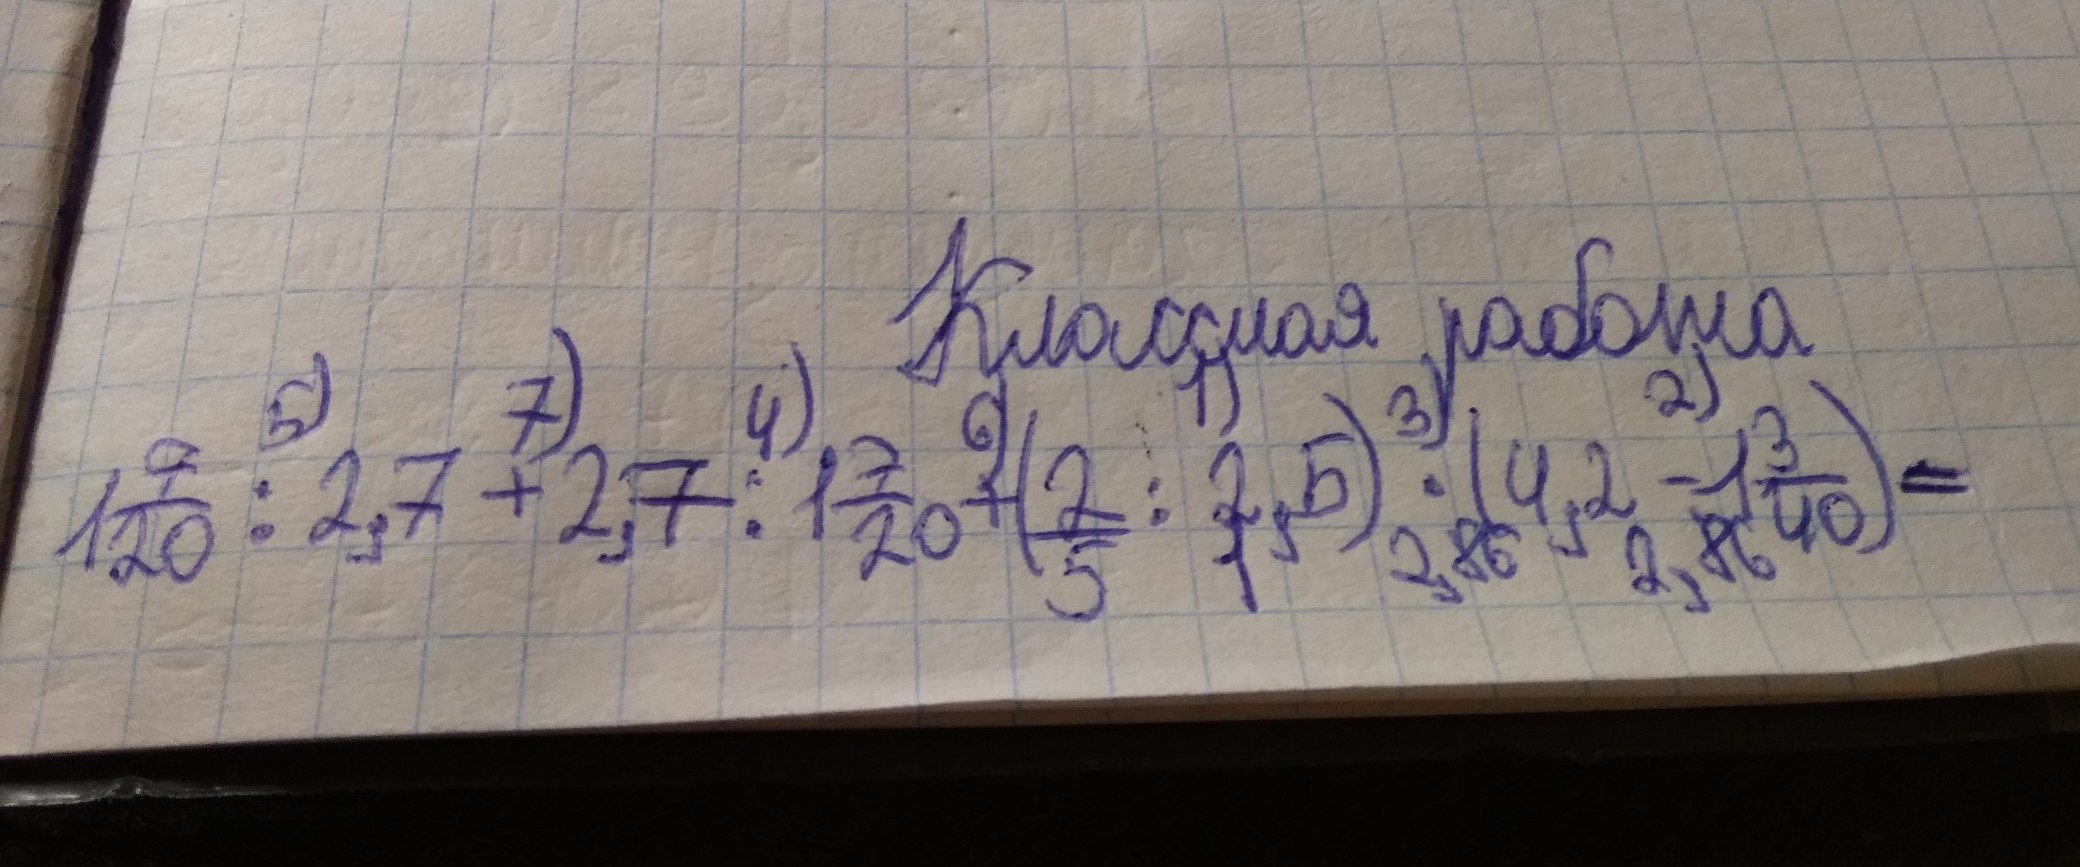 Классная работа
5) 7) 4) 6) 1) 3) 2)
1 7/20 : 2,7 + 2,7 : 1 7/20 + (2/5 : 2,5) · (4,2 - 1 3/40) =
1 2,86 2,86